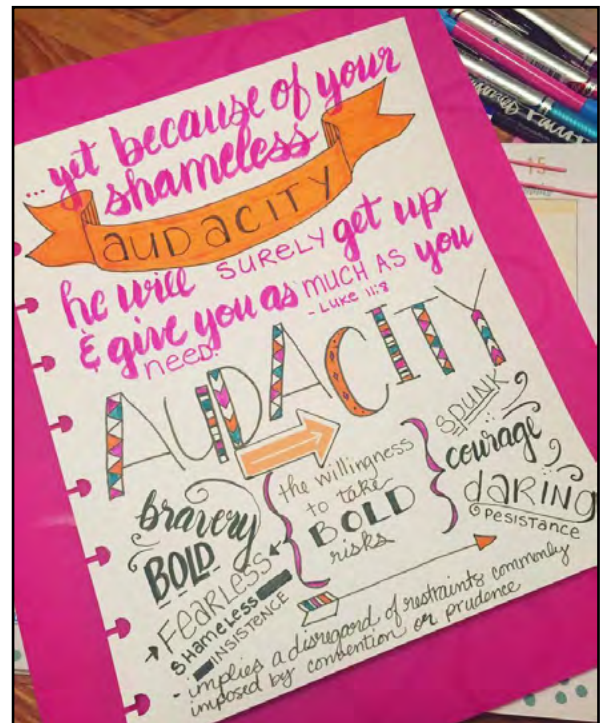 ...yet because of your
shameless
AUDACITY
he will SURELY get up
& give you as MUCH AS you
need.
- Luke 11:8
AUDACITY
bravery
BOLD
FEARLESS
SHAMELESS
INSISTENCE
the willingness
to take
BOLD
risks
SPUNK
courage
dARING
PESISTANCE
- implies a disregard of restraints commonly
imposed by convention or prudence
15